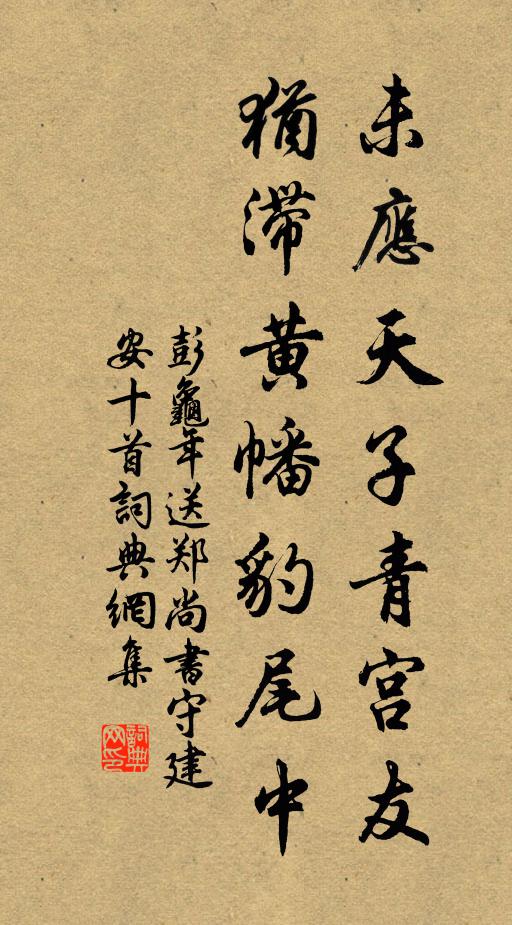 未應天子青宮友
猶滯黃幡豹尾中
彭龜年送郑尚書守建
安十首詞典網集
詞典
网印